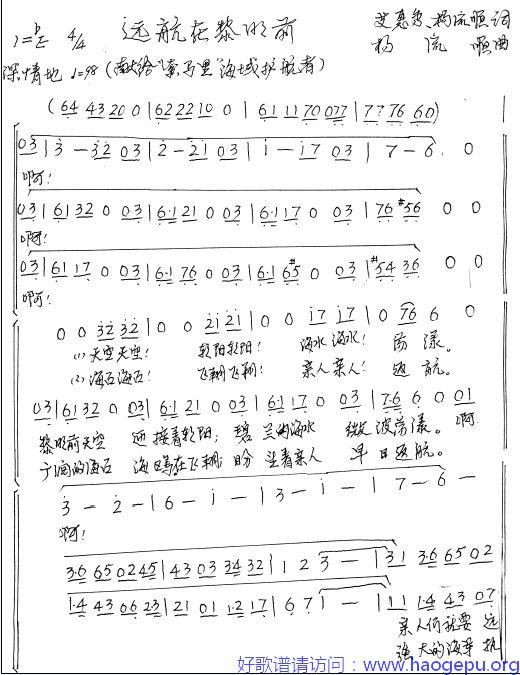 1=bE 4/4 远航在黎明前 艾惠多、杨流顺词
杨 流 顺曲
深情地 ♩=98 (献给“索马里”海域护航者)
(64 43 20 0 | 62 22 10 0 | 61 11 70 077 | 77 76 60)
03 | 3 - 32 03 | 2 - 21 03 | 1 - 17 03 | 7 - 6 . 0
啊!
03 | 61 32 0 03 | 6·1 21 0 03 | 6·1 17 0 03 | 76 #56 0 0
啊!
03 | 61 17 0 03 | 6·1 76 0 03 | 6·1 6#5 0 03 | #54 36 0 0
啊!
0 0 32 32 | 0 0 21 21 | 0 0 17 17 | 0 76 6 0
(1) 天空天空! 朝阳朝阳! 海水海水! 荡 漾。
(2) 海石海石! 飞翔飞翔! 亲人亲人! 返 航。
03 | 61 32 0 03 | 6·1 21 0 03 | 6·1 17 0 03 | 7·6 6 0 01
黎明前天空 迎 接着朝阳; 碧 兰的海水 微 波荡漾。 啊
广阔的海石 海 鸥在飞翔; 盼 望着亲人 早 日返航。
3 - 2 - | 6 - 1 - | 3 - 1 - | 7 - 6 -
啊!
3·6 65 02 45 | 43 03 34 32 | 1 2 3 - | 31 3·6 65 02
1·4 43 06 23 | 21 01 1·2 17 | 6 7 1 - | 11 1·4 43 07
亲人们就要 远
强大的海军 执
好歌谱请访问：www.haogepu.org